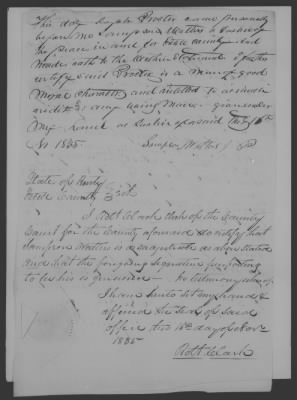 This day Joseph Proctor came personally
before me Sampson Walters a Justice of
the peace in and for Estill County and
made oath to the within Statement I further
certify Said Proctor is a man of good
moral Character and entitled to as much
credit as any living man. given under
my hand as Justice aforesaid
1835 Sampson Walters J P
State of Kenty
Estill County Sct
I Robt Clark Clerk of the County
Court for the County aforesaid do certify that
Sampson Walters is a magistrate as above stated
and that the foregoing signature purporting
to be his is genuine - In testimony whereof
I have hereto Set my hand &
affixed the Seal of Said
office this 16th day of Novr
1835
Robt Clark